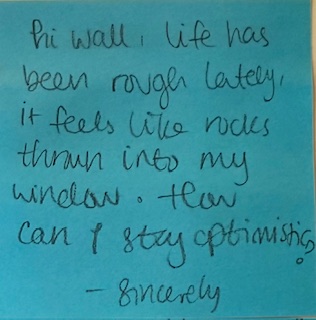 hi wall, life has
been rough lately,
it feels like rocks
thrown into my
window. How
can I stay optimistic?
- Sincerely